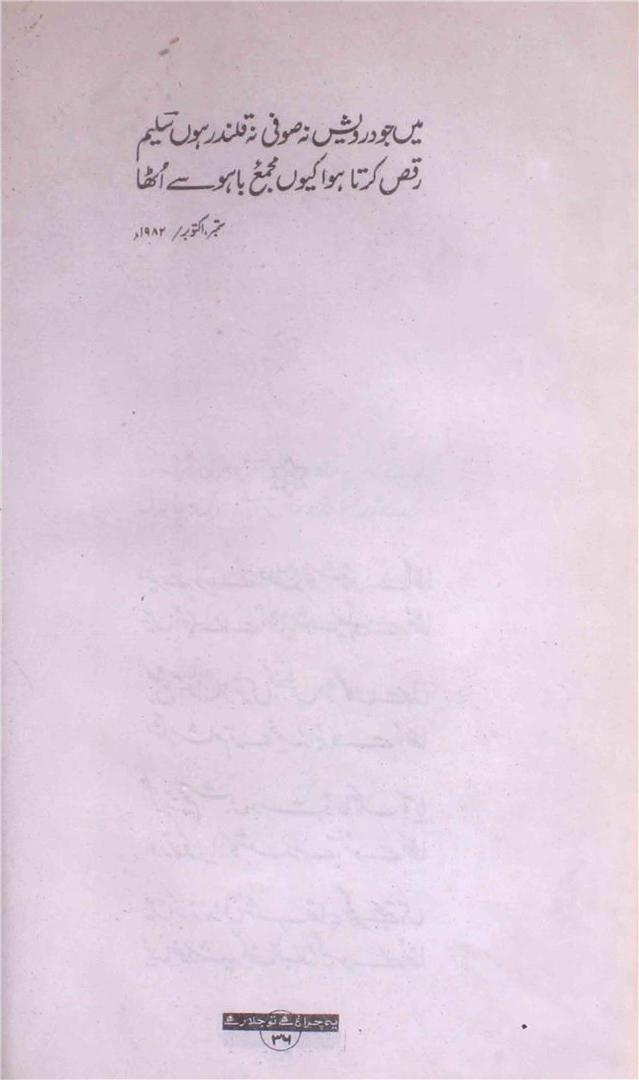 میں جو درویش نہ صوفی نہ قلندر ہوں سلیم
رقص کرتا ہوا کیوں مجمعِ باہو سے اُٹھا
ستمبر، اکتوبر/ ۱۹۸۲ء
یہ چراغ ہے تو جلا رہے
۳۶